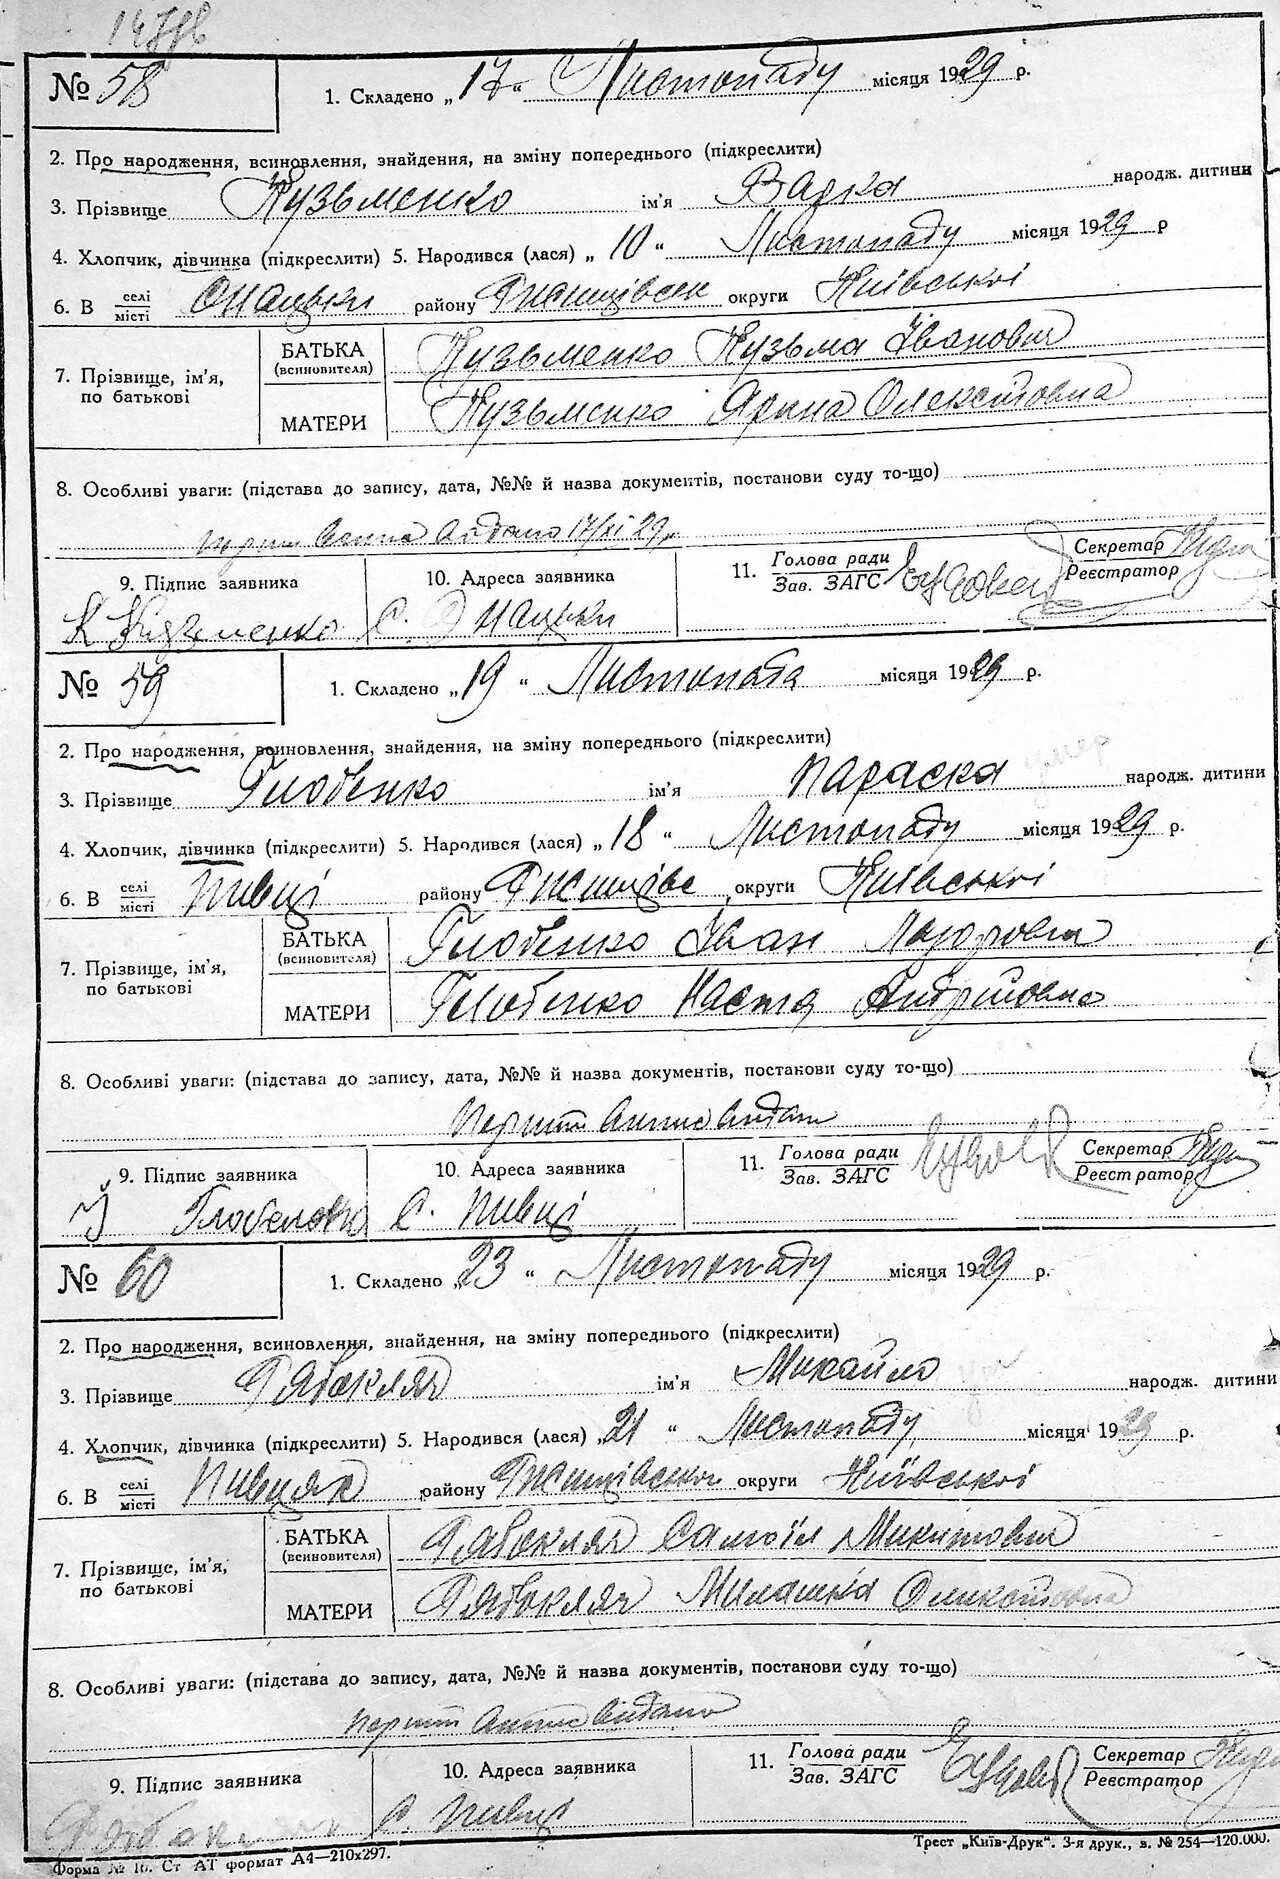 № 58 1. Складено „17“ Листопаду місяця 1929 р.
2. Про народження, всиновлення, знайдення, на зміну попереднього (підкреслити)
3. Прізвище Кузьменко ім'я Варка народж. дитини
4. Хлопчик, дівчинка (підкреслити) 5. Народився (лася) „10“ Листопаду місяця 1929 р
6. В селі місті Онацьки району Ржищівськ округи Київської
7. Прізвище, ім'я, по батькові
БАТЬКА (всиновителя) Кузьменко Кузьма Іванович
МАТЕРИ Кузьменко Ярина Олексіовна
8. Особливі уваги: (підстава до запису, дата, №№ й назва документів, постанови суду то-що)
17/XI 29 р
9. Підпис заявника 10. Адреса заявника 11. Голова ради Зав. ЗАГС Секретар Реєстратор
К Кузменко с. Онацьки
№ 59 1. Складено „19“ Листопада місяця 1929 р.
2. Про народження, всиновлення, знайдення, на зміну попереднього (підкреслити)
3. Прізвище Глобенко ім'я Параска умер народж. дитини
4. Хлопчик, дівчинка (підкреслити) 5. Народився (лася) „18“ Листопаду місяця 1929 р.
6. В селі місті Пивці району Ржищівс округи Київської
7. Прізвище, ім'я, по батькові
БАТЬКА (всиновителя) Глобенко Іван
МАТЕРИ Глобенко Настя Андріовна
8. Особливі уваги: (підстава до запису, дата, №№ й назва документів, постанови суду то-що)
9. Підпис заявника 10. Адреса заявника 11. Голова ради Зав. ЗАГС Секретар Реєстратор
с. Пивці
№ 60 1. Складено „23“ Листопаду місяця 1929 р.
2. Про народження, всиновлення, знайдення, на зміну попереднього (підкреслити)
3. Прізвище Рябокляч ім'я Михайло народж. дитини
4. Хлопчик, дівчинка (підкреслити) 5. Народився (лася) „21“ Листопаду місяця 1929 р.
6. В селі місті Пивцях району Ржищівської округи Київської
7. Прізвище, ім'я, по батькові
БАТЬКА (всиновителя) Рябокляч Самоїл Микитович
МАТЕРИ Рябокляч Милашка Олексіовна
8. Особливі уваги: (підстава до запису, дата, №№ й назва документів, постанови суду то-що)
9. Підпис заявника 10. Адреса заявника 11. Голова ради Зав. ЗАГС Секретар Реєстратор
с. Пивці
Форма № 16. Ст АТ формат А4—210х297. Трест „Київ-Друк“. 3-я друк., в. № 254—120.000.